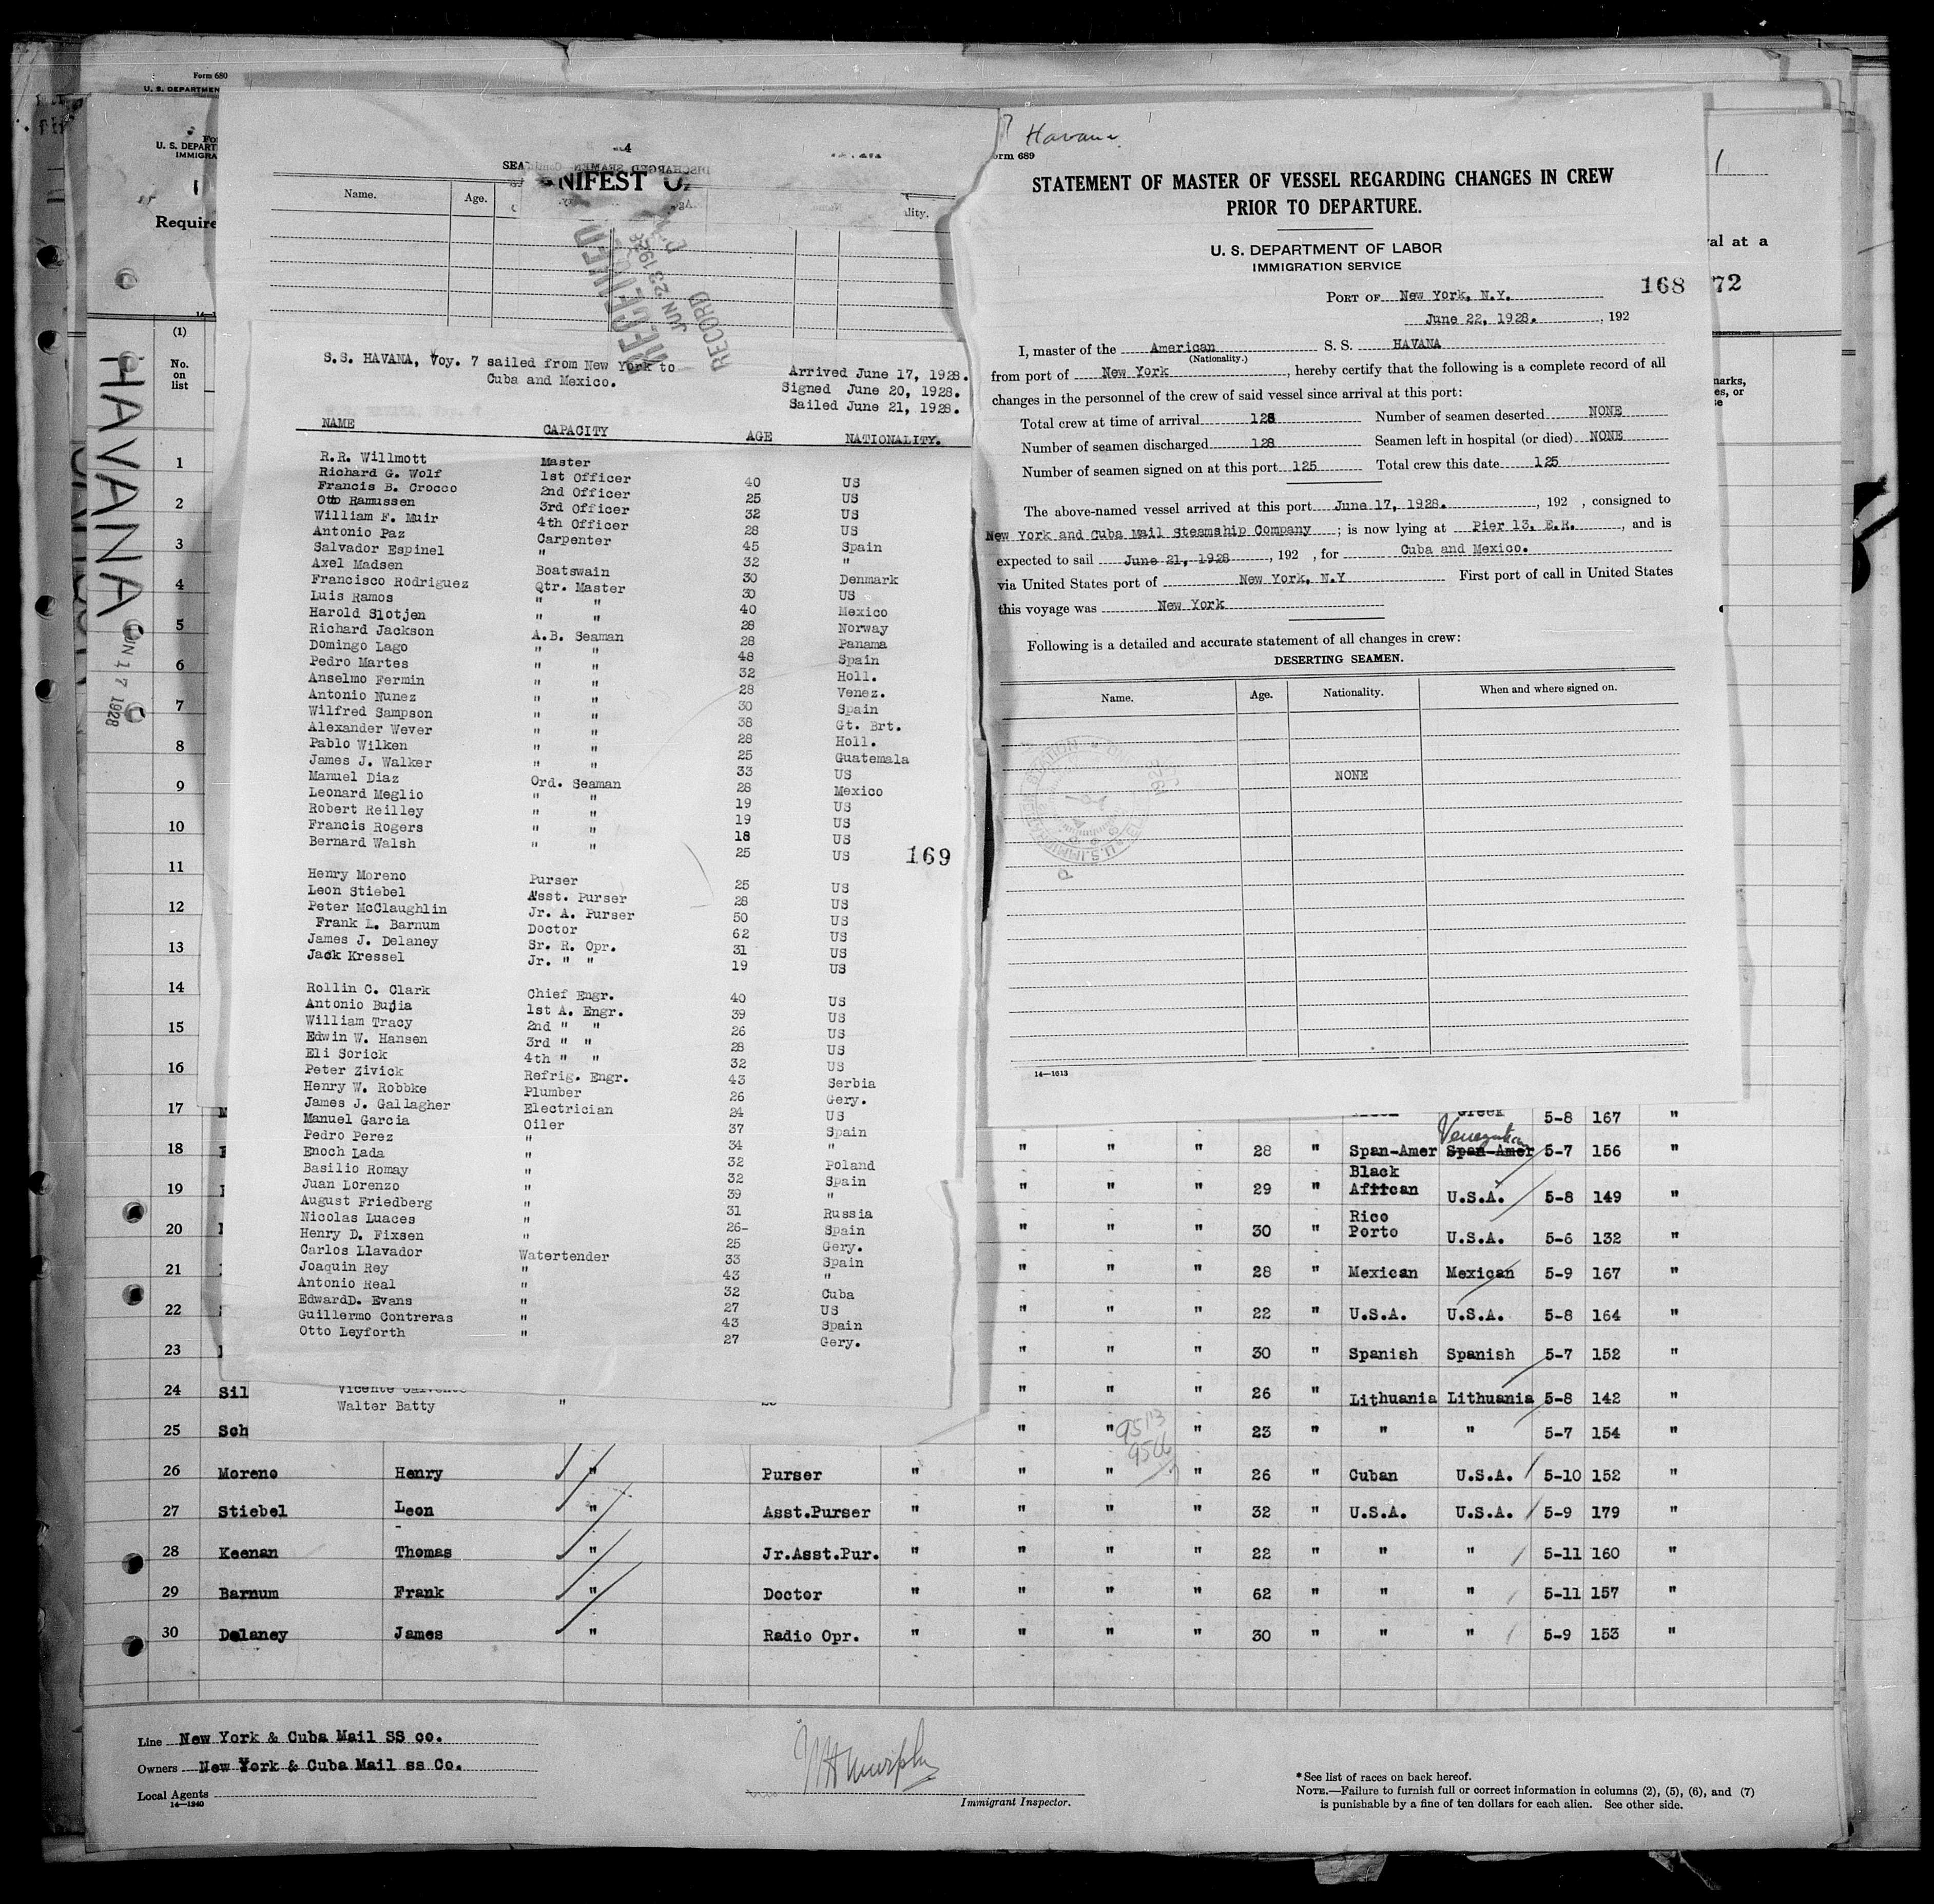 Form 680
U. S. DEPARTMEN
U. S. DEPART
IMMIGRA
1
Require
(1)
No.
on
list
HAVANA
JUN 17 1928
4
NIFEST
DISCHARGED SEAMEN
Name.
Age.
RECEIVED
JUN 23 1928
RECORD
S.S. HAVANA, Voy. 7 sailed from New York to
Cuba and Mexico.
Arrived June 17, 1928.
Signed June 20, 1928.
Sailed June 21, 1928.
NAME CAPACITY AGE NATIONALITY.
R.R. Willmott Master
Richard G. Wolf 1st Officer 40 US
Francis B. Crocco 2nd Officer 25 US
Otto Ramussen 3rd Officer 32 US
William F. Muir 4th Officer 28 US
Antonio Paz Carpenter 45 Spain
Salvador Espinel " 32 "
Axel Madsen Boatswain 30 Denmark
Francisco Rodriguez Qtr. Master 30 US
Luis Ramos " " 40 Mexico
Harold Slotjen " " 28 Norway
Richard Jackson A.B. Seaman 28 Panama
Domingo Lago " " 48 Spain
Pedro Martes " " 32 Holl.
Anselmo Fermin " " 28 Venez.
Antonio Nunez " " 30 Spain
Wilfred Sampson " " 38 Gt. Brt.
Alexander Wever " " 28 Holl.
Pablo Wilken " " 25 Guatemala
James J. Walker " " 33 US
Manuel Diaz Ord. Seaman 28 Mexico
Leonard Meglio " " 19 US
Robert Reilley " " 19 US
Francis Rogers " " 18 US
Bernard Walsh " " 25 US
169
Henry Moreno Purser 25 US
Leon Stiebel Asst. Purser 28 US
Peter McClaughlin Jr. A. Purser 50 US
Frank L. Barnum Doctor 62 US
James J. Delaney Sr. R. Opr. 31 US
Jack Kressel Jr. " " 19 US
Rollin C. Clark Chief Engr. 40 US
Antonio Bujia 1st A. Engr. 39 US
William Tracy 2nd " " 26 US
Edwin W. Hansen 3rd " " 28 US
Eli Sorick 4th " " 32 US
Peter Zivick Refrig. Engr. 43 Serbia
Henry W. Robbke Plumber 26 Gery.
James J. Gallagher Electrician 24 US
Manuel Garcia Oiler 37 Spain
Pedro Perez " 34 "
Enoch Lada " 32 Poland
Basilio Romay " 32 Spain
Juan Lorenzo " 39 "
August Friedberg " 31 Russia
Nicolas Luaces " 26- Spain
Henry D. Fixsen " 25 Gery.
Carlos Llavador Watertender 33 Spain
Joaquin Rey " 43 "
Antonio Real " 32 Cuba
EdwardD. Evans " 27 US
Guillermo Contreras " 43 Spain
Otto Leyforth " 27 Gery.
Walter Batty "
Havana
orm 689
STATEMENT OF MASTER OF VESSEL REGARDING CHANGES IN CREW
PRIOR TO DEPARTURE.
U. S. DEPARTMENT OF LABOR
IMMIGRATION SERVICE
168
PORT OF New York, N.Y.
June 22, 1928. , 192
I, master of the American S. S. HAVANA
(Nationality.)
from port of New York , hereby certify that the following is a complete record of all
changes in the personnel of the crew of said vessel since arrival at this port:
Total crew at time of arrival 128 Number of seamen deserted NONE
Number of seamen discharged 128 Seamen left in hospital (or died) NONE
Number of seamen signed on at this port 125 Total crew this date 125
The above-named vessel arrived at this port June 17, 1928. , 192 , consigned to
New York and Cuba Mail Steamship Company ; is now lying at Pier 13, E.R. , and is
expected to sail June 21, 1928 , 192 , for Cuba and Mexico.
via United States port of New York, N.Y First port of call in United States
this voyage was New York
Following is a detailed and accurate statement of all changes in crew:
DESERTING SEAMEN.
Name. Age. Nationality. When and where signed on.
NONE
14—1613
1
val at a
72
1
2
3
4
5
6
7
8
9
10
11
12
13
14
15
16
17 Greek 5-8 167 "
18 " " " 28 " Span-Amer Span-Amer Venezuelan 5-7 156 "
19 " " " 29 " Black African U.S.A. 5-8 149 "
20 " " " 30 " Rico Porto U.S.A. 5-6 132 "
21 " " " 28 " Mexican Mexican 5-9 167 "
22 " " " 22 " U.S.A. U.S.A. 5-8 164 "
23 " " " 30 " Spanish Spanish 5-7 152 "
24 Sil " " " 26 " Lithuania Lithuania 5-8 142 "
25 Sch " " " 23 " " " 5-7 154 "
26 Moreno Henry " Purser " " " " 26 " Cuban U.S.A. 5-10 152 "
27 Stiebel Leon " Asst.Purser " " " " 32 " U.S.A. U.S.A. 5-9 179 "
28 Keenan Thomas " Jr.Asst.Pur. " " " " 22 " " " 5-11 160 "
29 Barnum Frank " Doctor " " " " 62 " " " 5-11 157 "
30 Delaney James " Radio Opr. " " " " 30 " " " 5-9 153 "
Line New York & Cuba Mail SS co.
Owners New York & Cuba Mail ss Co.
Local Agents
14—1240
Immigrant Inspector.
* See list of races on back hereof.
NOTE.—Failure to furnish full or correct information in columns (2), (5), (6), and (7)
is punishable by a fine of ten dollars for each alien. See other side.